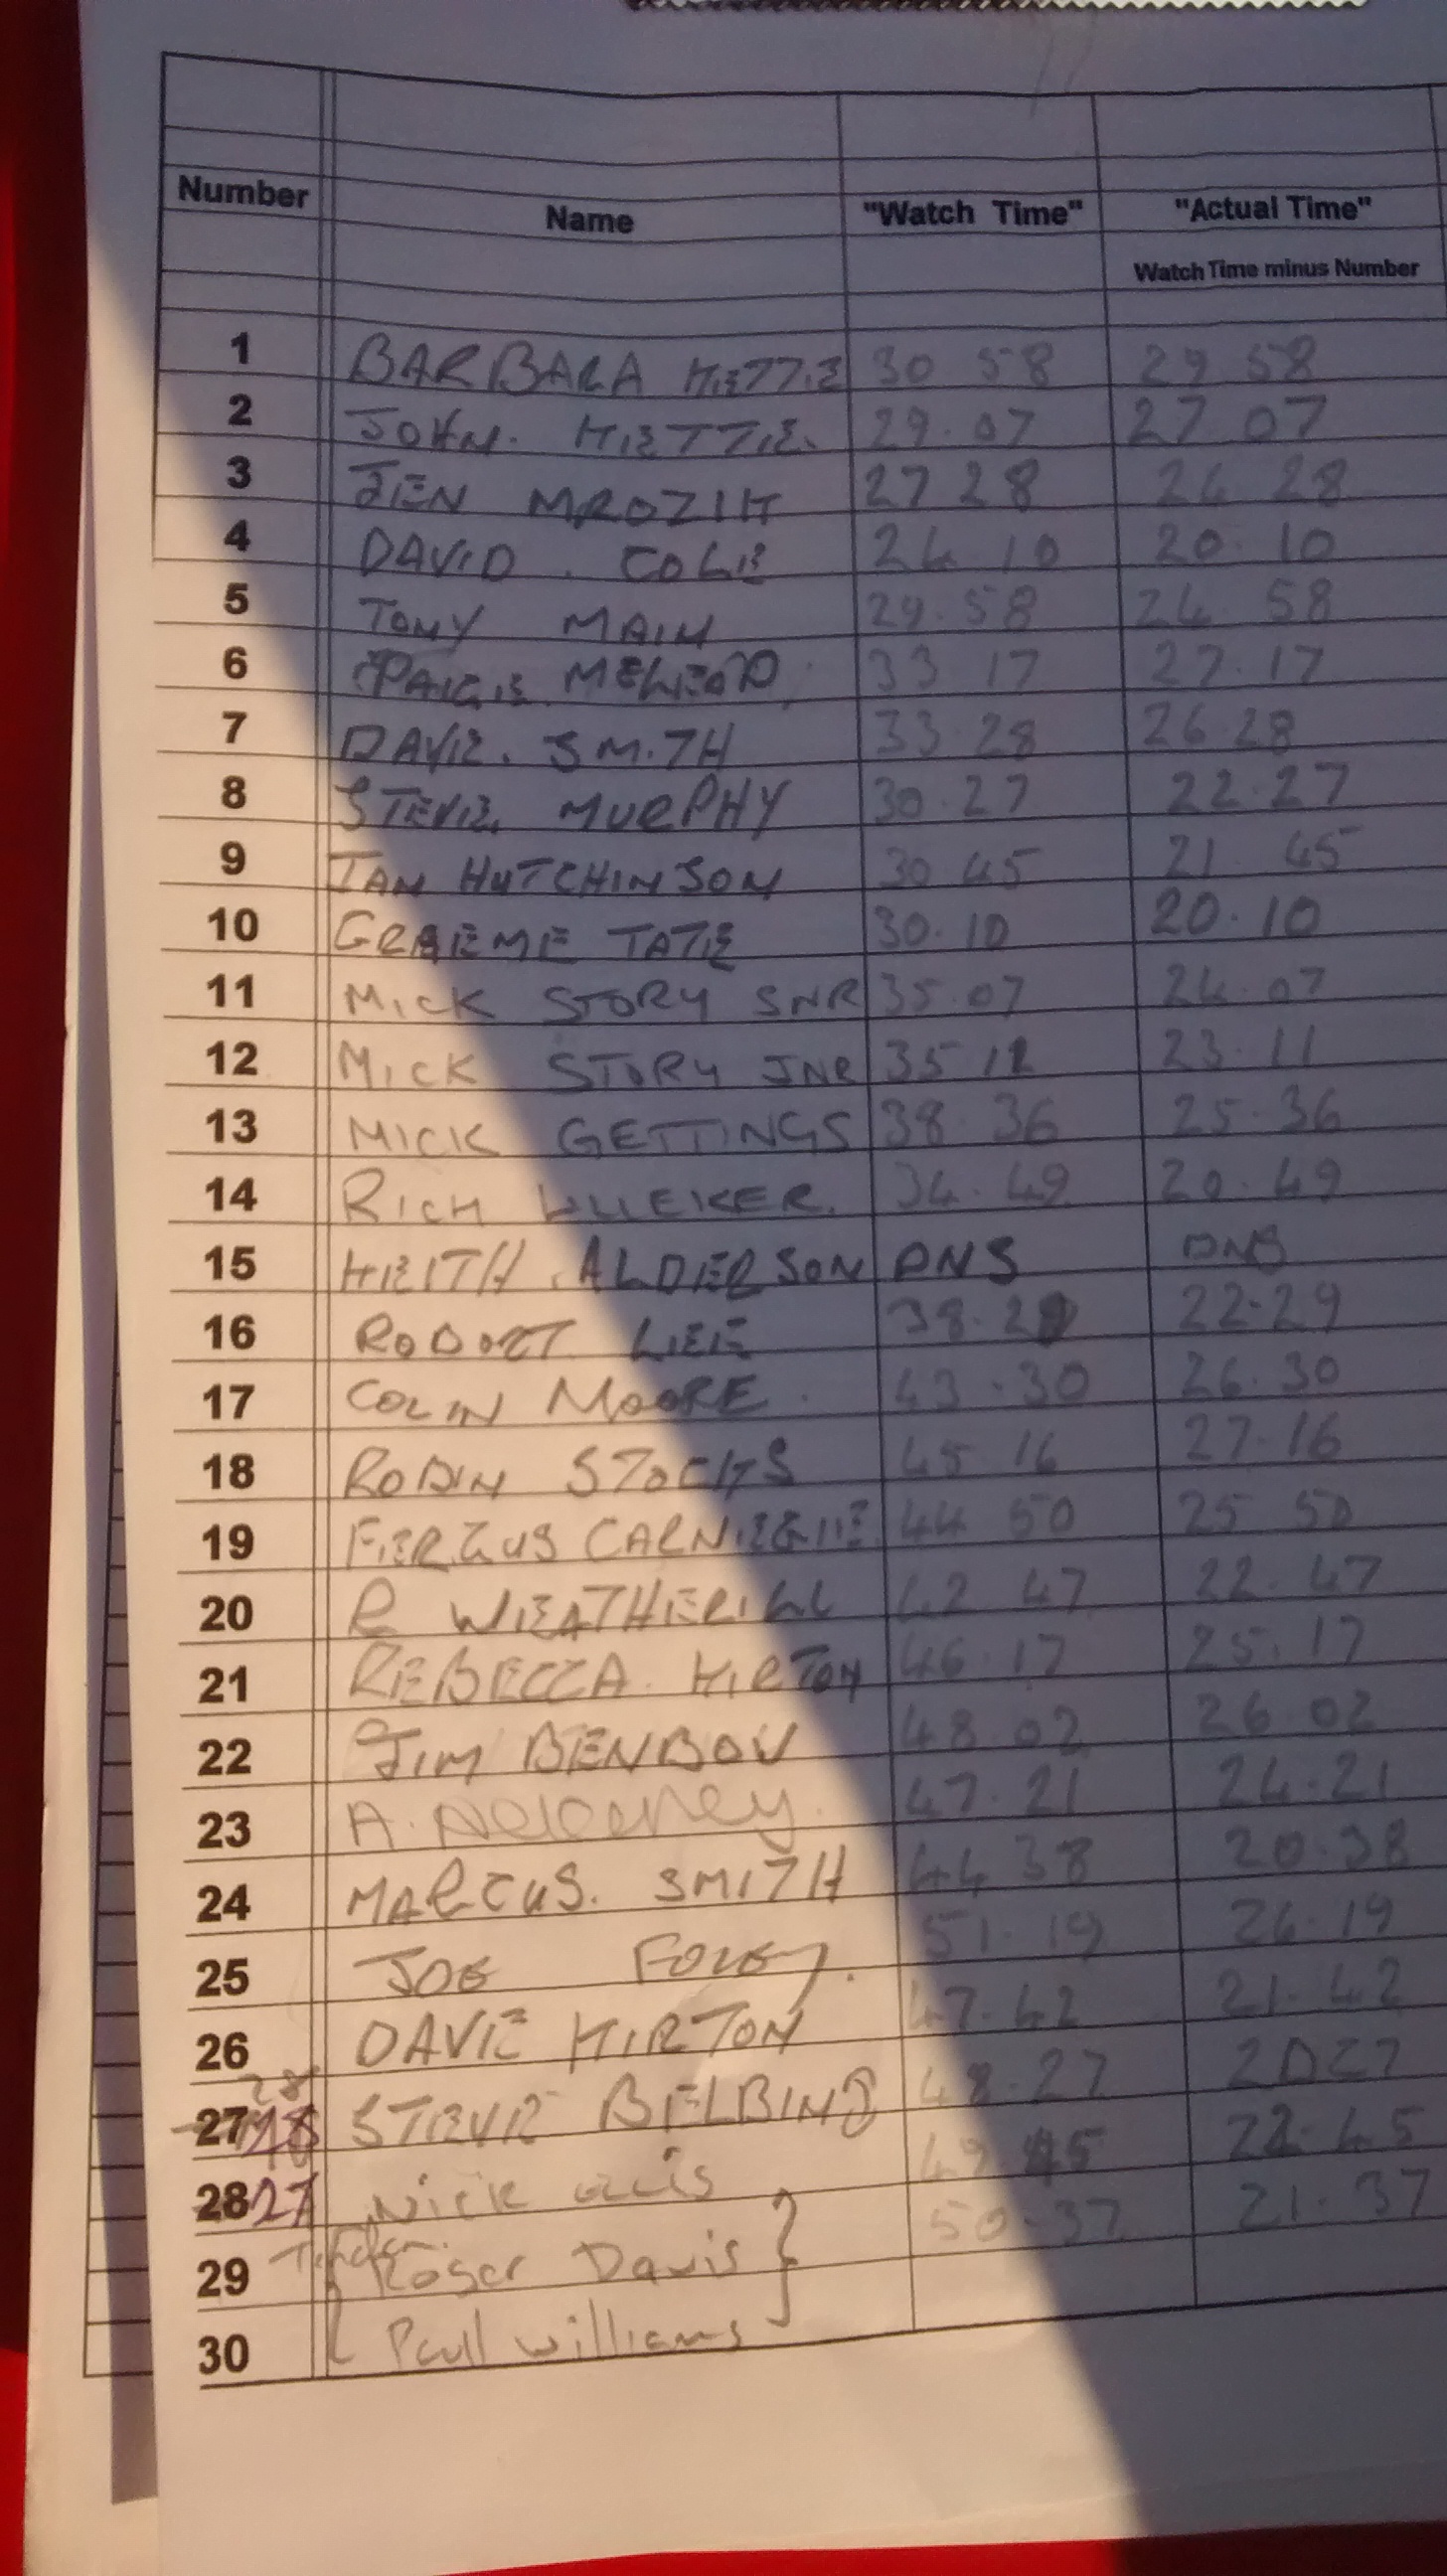 Number Name "Watch Time" "Actual Time"
Watch Time minus Number
1 BARBARA KETTLE 30 58 29 58
2 JOHN. KETTLE. 29.07 27 07
3 JEN MROZIK 27 28 24 28
4 DAVID. COLE 24 10 20.10
5 TONY MAIN 29.58 24 58
6 PAIGE. MELEOD 33 17 27.17
7 DAVE. SMITH 33.28 26.28
8 STEVE MURPHY 30.27 22.27
9 IAN HUTCHINSON 30 45 21 45
10 GRAEME TATE 30.10 20.10
11 MICK STORY SNR 35.07 24.07
12 MICK STORY JNR 35 11 23.11
13 MICK GETTINGS 38 36 25.36
14 RICH 34.49 20.49
15 KEITH. ALDERSON DNS DNS
16 ROBERT LEE 38.29 22.29
17 COLIN MOORE. 43.30 26.30
18 ROBIN STOCKS 45 16 27.16
19 FERGUS CARNEGIE 44 50 25 50
20 R WEATHERILL 42 47 22.47
21 REBECCA. KIRTON 46.17 25.17
22 JIM BENBOW 48 02 26 02
23 A. 47.21 24.21
24 MARCUS. SMITH 44 38 20.38
25 JOE FOLEY. 51.19 26.19
26 DAVE KIRTON 47.42 21.42
28
27 28 STEVE BELBING 48.27 20 27
28 27 NICK 49 45 22.45
29 Roger Davis 50.37 21.37
30 Paul Williams